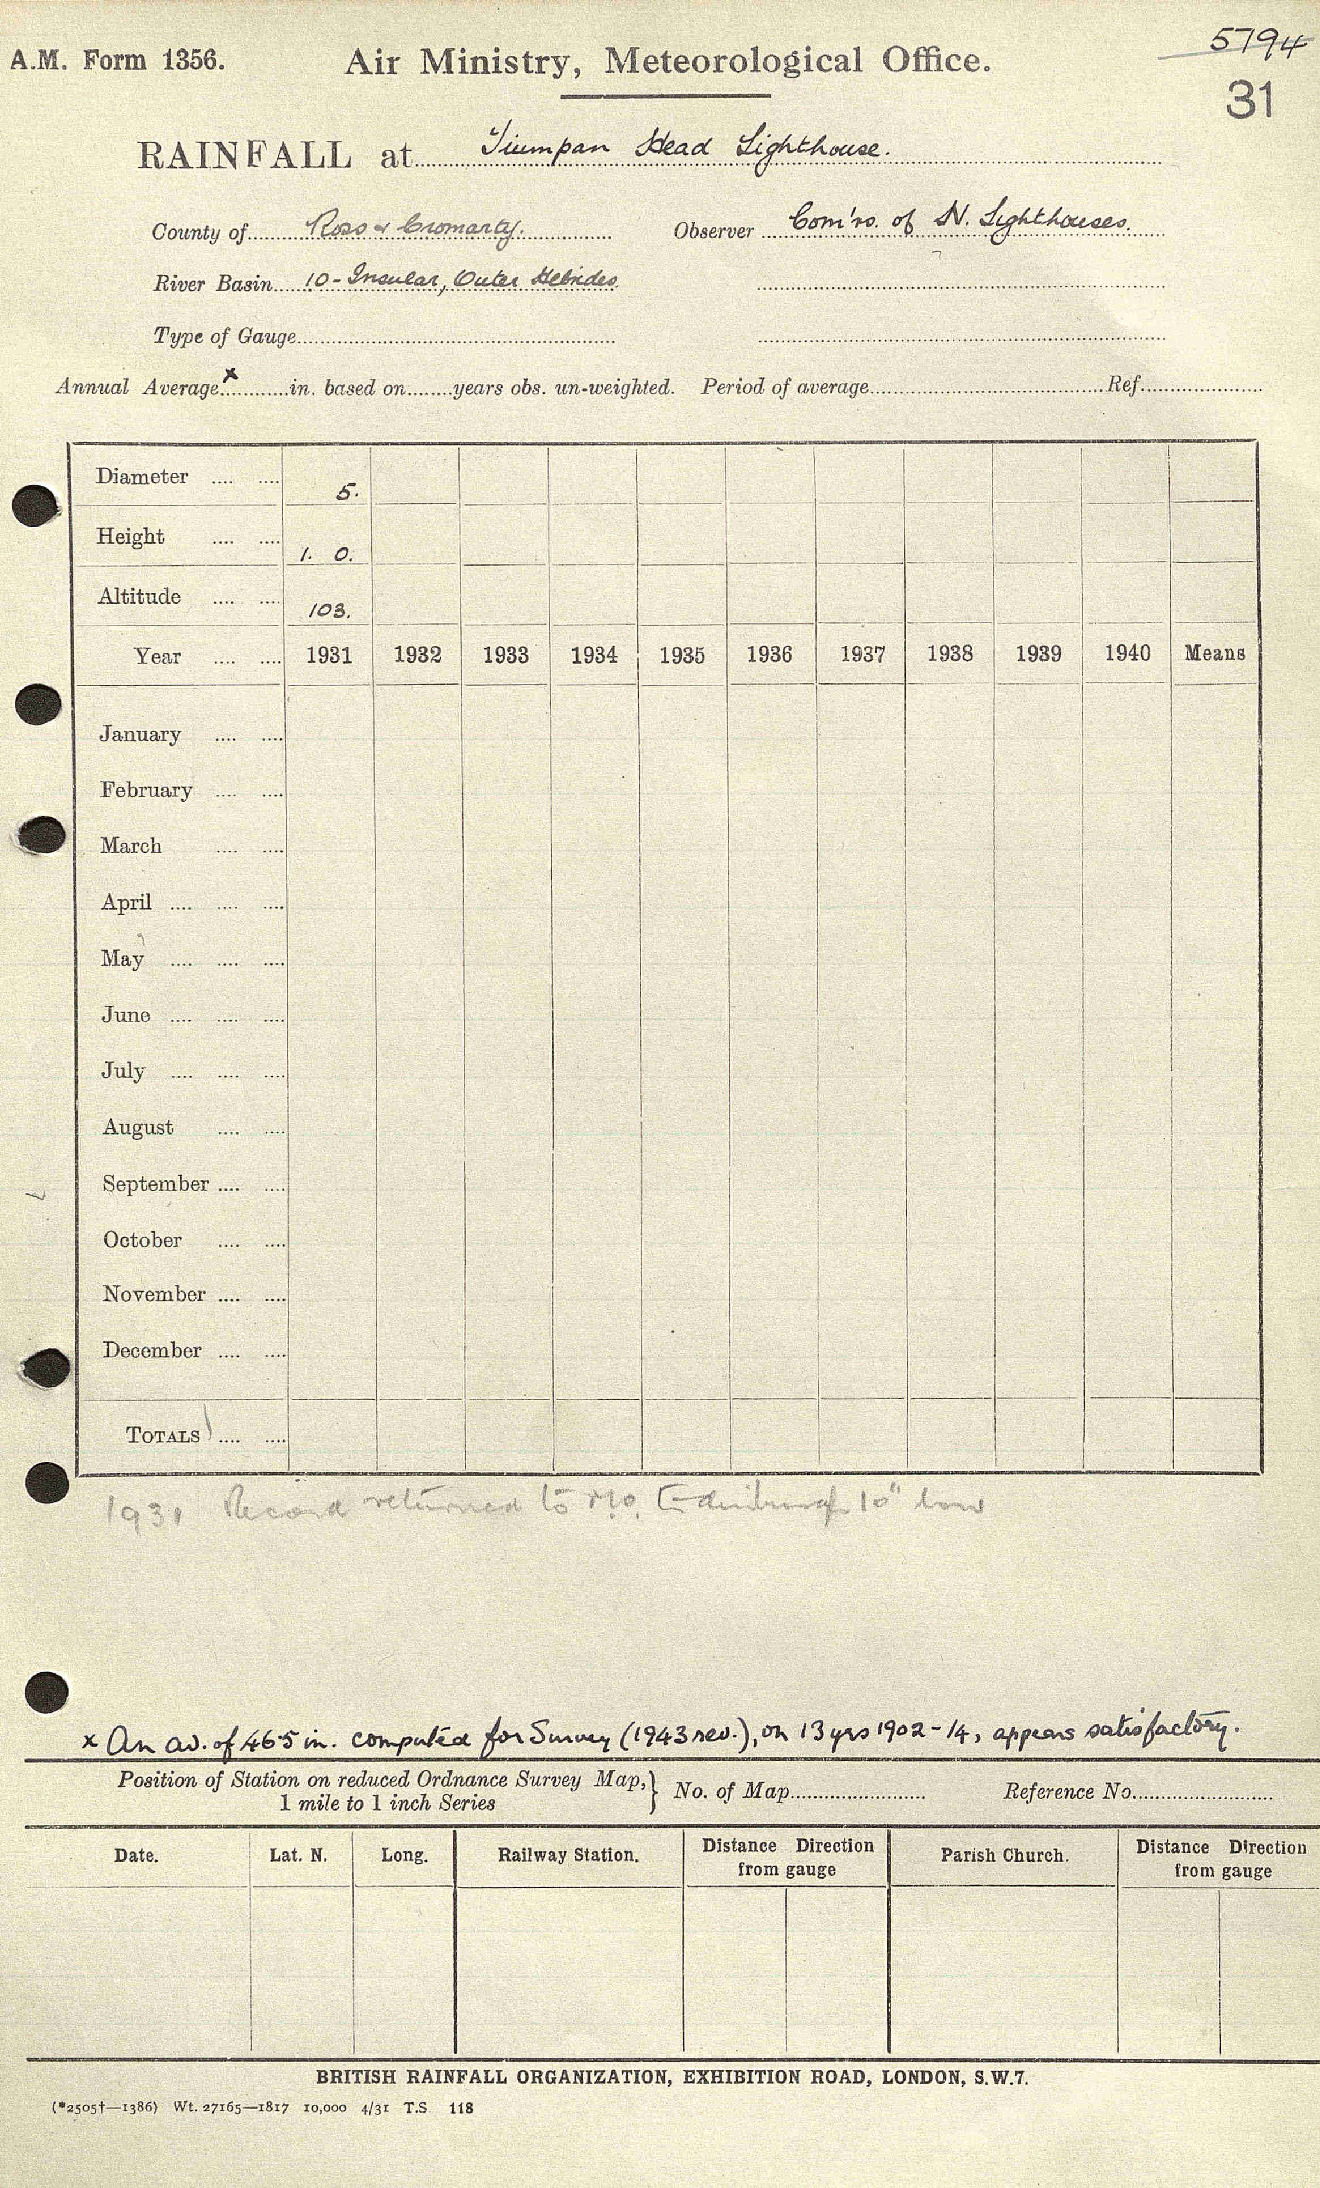 5794
A.M. Form 1356. Air Ministry, Meteorological Office.
31
RAINFALL at Tiumpan Head Lighthouse.
County of Ross & Cromarty. Observer Com'rs. of N. Lighthouses.
River Basin 10 - Insular, Outer Hebrides
Type of Gauge
Annual Average x in. based on years obs. un-weighted. Period of average Ref
Diameter 5.
Height 1. 0.
Altitude 103.
Year 1931 1932 1933 1934 1935 1936 1937 1938 1939 1940 Means
January
February
March
April
May
June
July
August
September
October
November
December
TOTALS
1931 Record returned to M.O. Edinburgh 10" low
x An av. of 46.5 in. computed for Survey (1943 rev.), on 13 yrs 1902-14, appears satisfactory.
Position of Station on reduced Ordnance Survey Map, } No. of Map Reference No.
1 mile to 1 inch Series
Date. Lat. N. Long. Railway Station. Distance Direction from gauge Parish Church. Distance Direction from gauge
BRITISH RAINFALL ORGANIZATION, EXHIBITION ROAD, LONDON, S.W.7.
(*2505†—1386) Wt. 27165—1817 10,000 4/31 T.S. 118